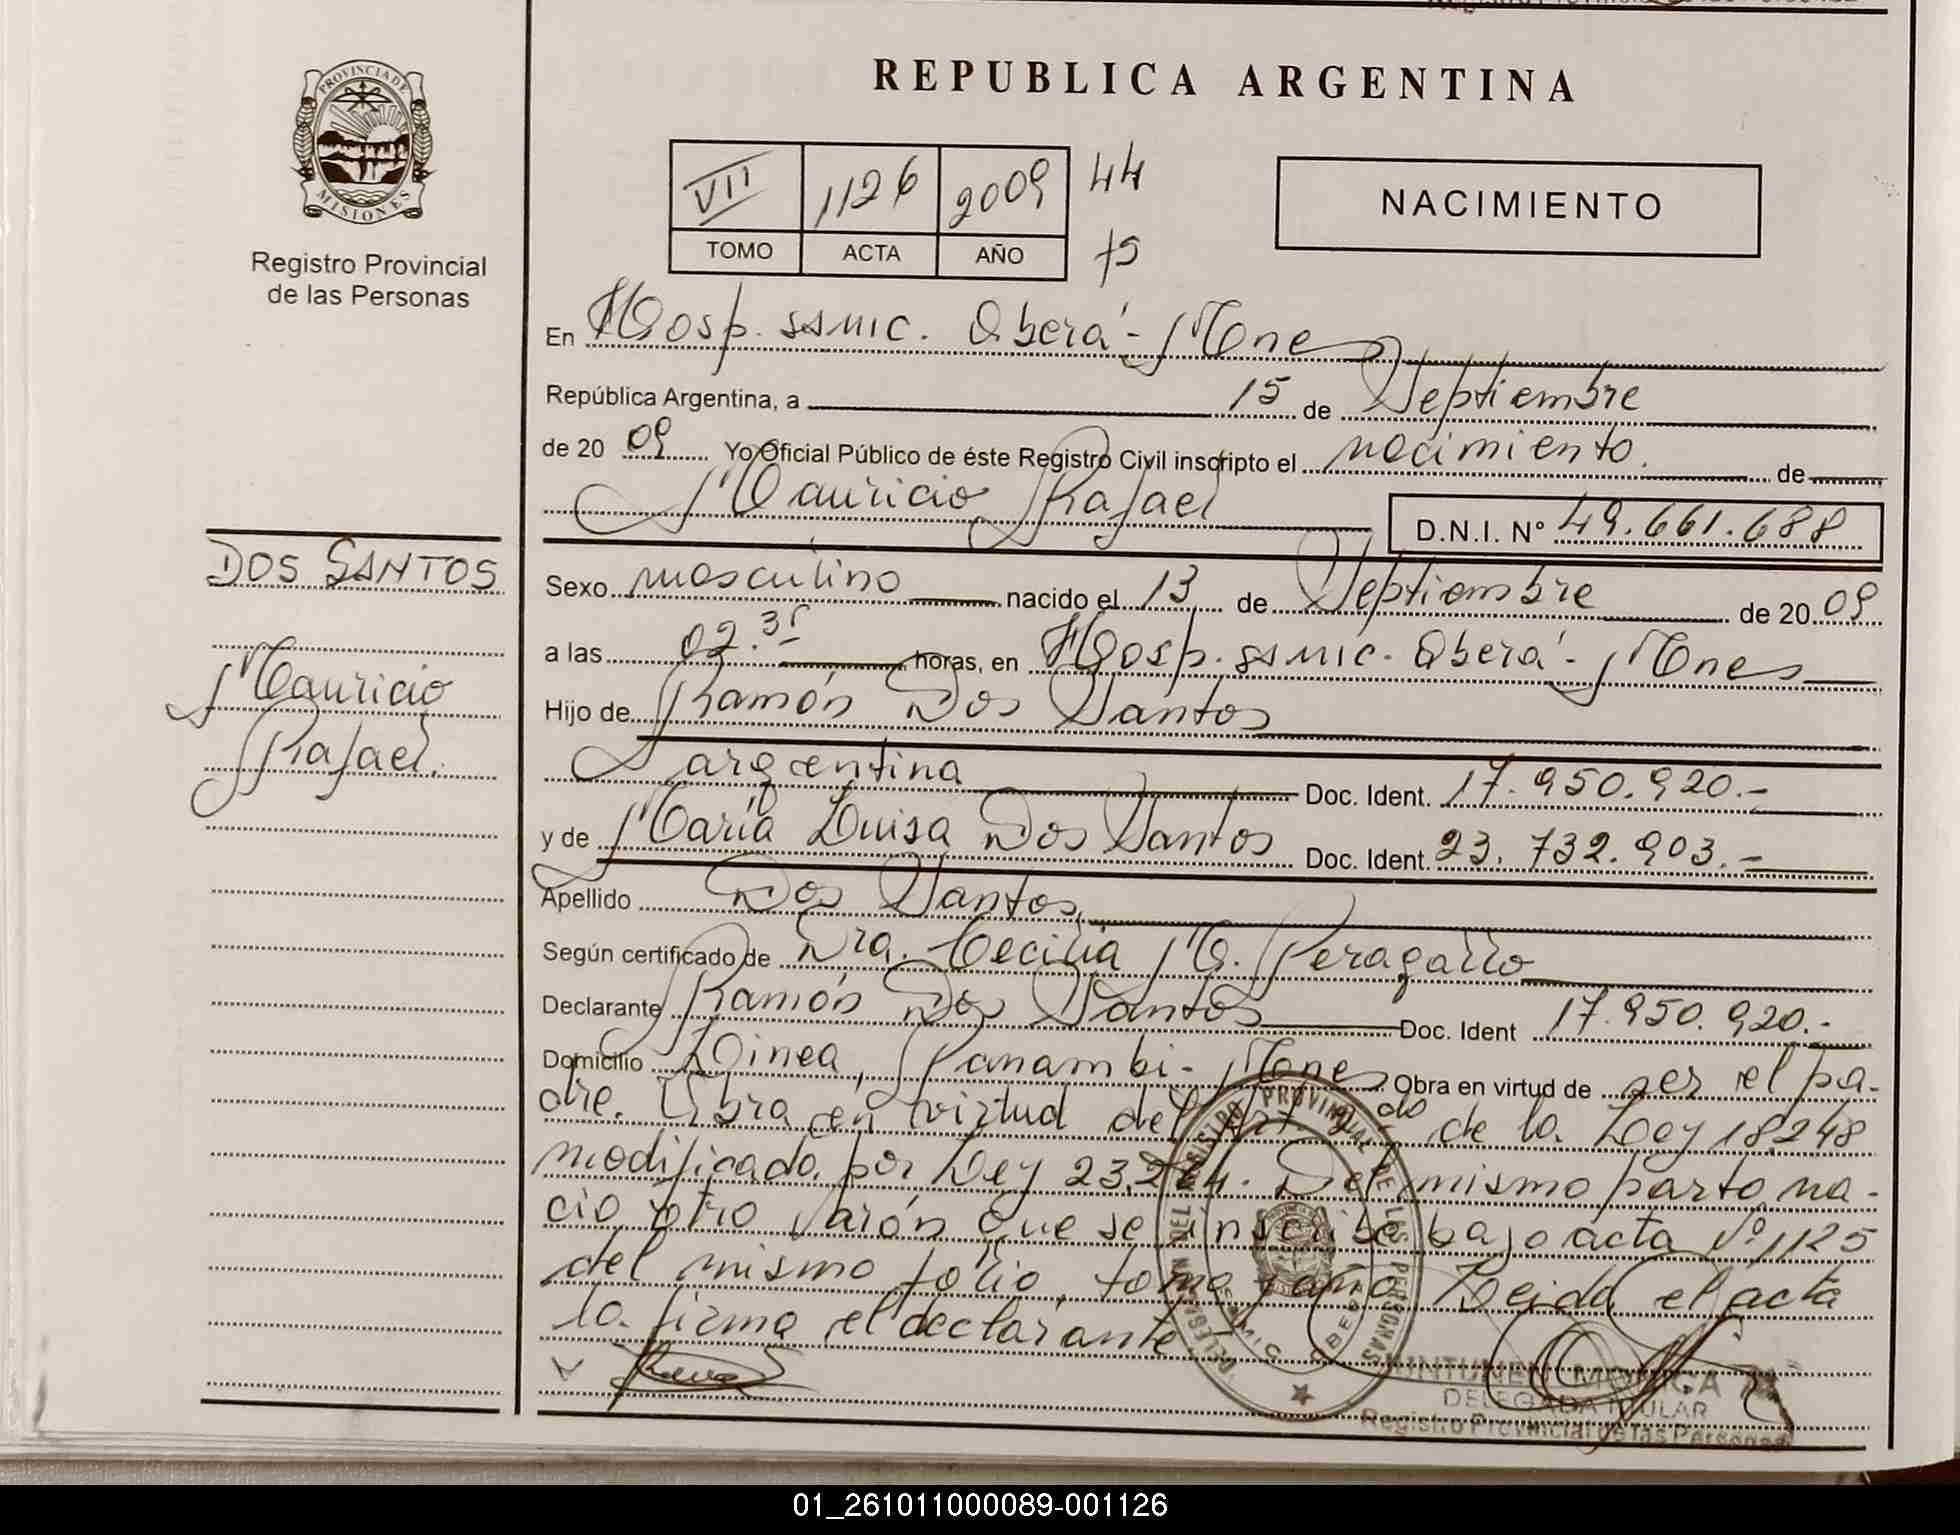 REPUBLICA ARGENTINA
PROVINCIA DE
MISIONES
Registro Provincial
de las Personas
VII 1126 2009 44
TOMO ACTA AÑO
NACIMIENTO
En Hosp. ssmic. Oberá - Mnes
República Argentina, a 15 de Septiembre
de 20 09 Yo Oficial Público de éste Registro Civil inscripto el nacimiento. de
Mauricio Rafael D.N.I. Nº 49.661.688
DOS SANTOS
Mauricio
Rafael.
Sexo masculino nacido el 13 de Septiembre de 20 09
a las 02.35 horas, en Hosp. ssmic. Oberá - Mnes
Hijo de Ramón Dos Santos
argentina Doc. Ident. 17.950.920.-
y de María Luisa Dos Santos Doc. Ident. 23.732.903.-
Apellido Dos Santos
Según certificado de Dra. Cecilia M. Peragallo
Declarante Ramón Dos Santos Doc. Ident 17.950.920.-
Domicilio Linea, Panambi - Mnes Obra en virtud de ser el pa-
dre. Obra en virtud del Art 2do de la Ley 18.248
modificada por Ley 23.264. Del mismo parto na-
cio otro varón que se inscribe bajo acta Nº 1125
del mismo folio, tomo y año. Leida el acta
la firma el declarante
REGISTRO PROVINCIAL DE LAS PERSONAS
MONICA
DELEGADA TITULAR
Registro Provincial de las Personas
01_261011000089-001126